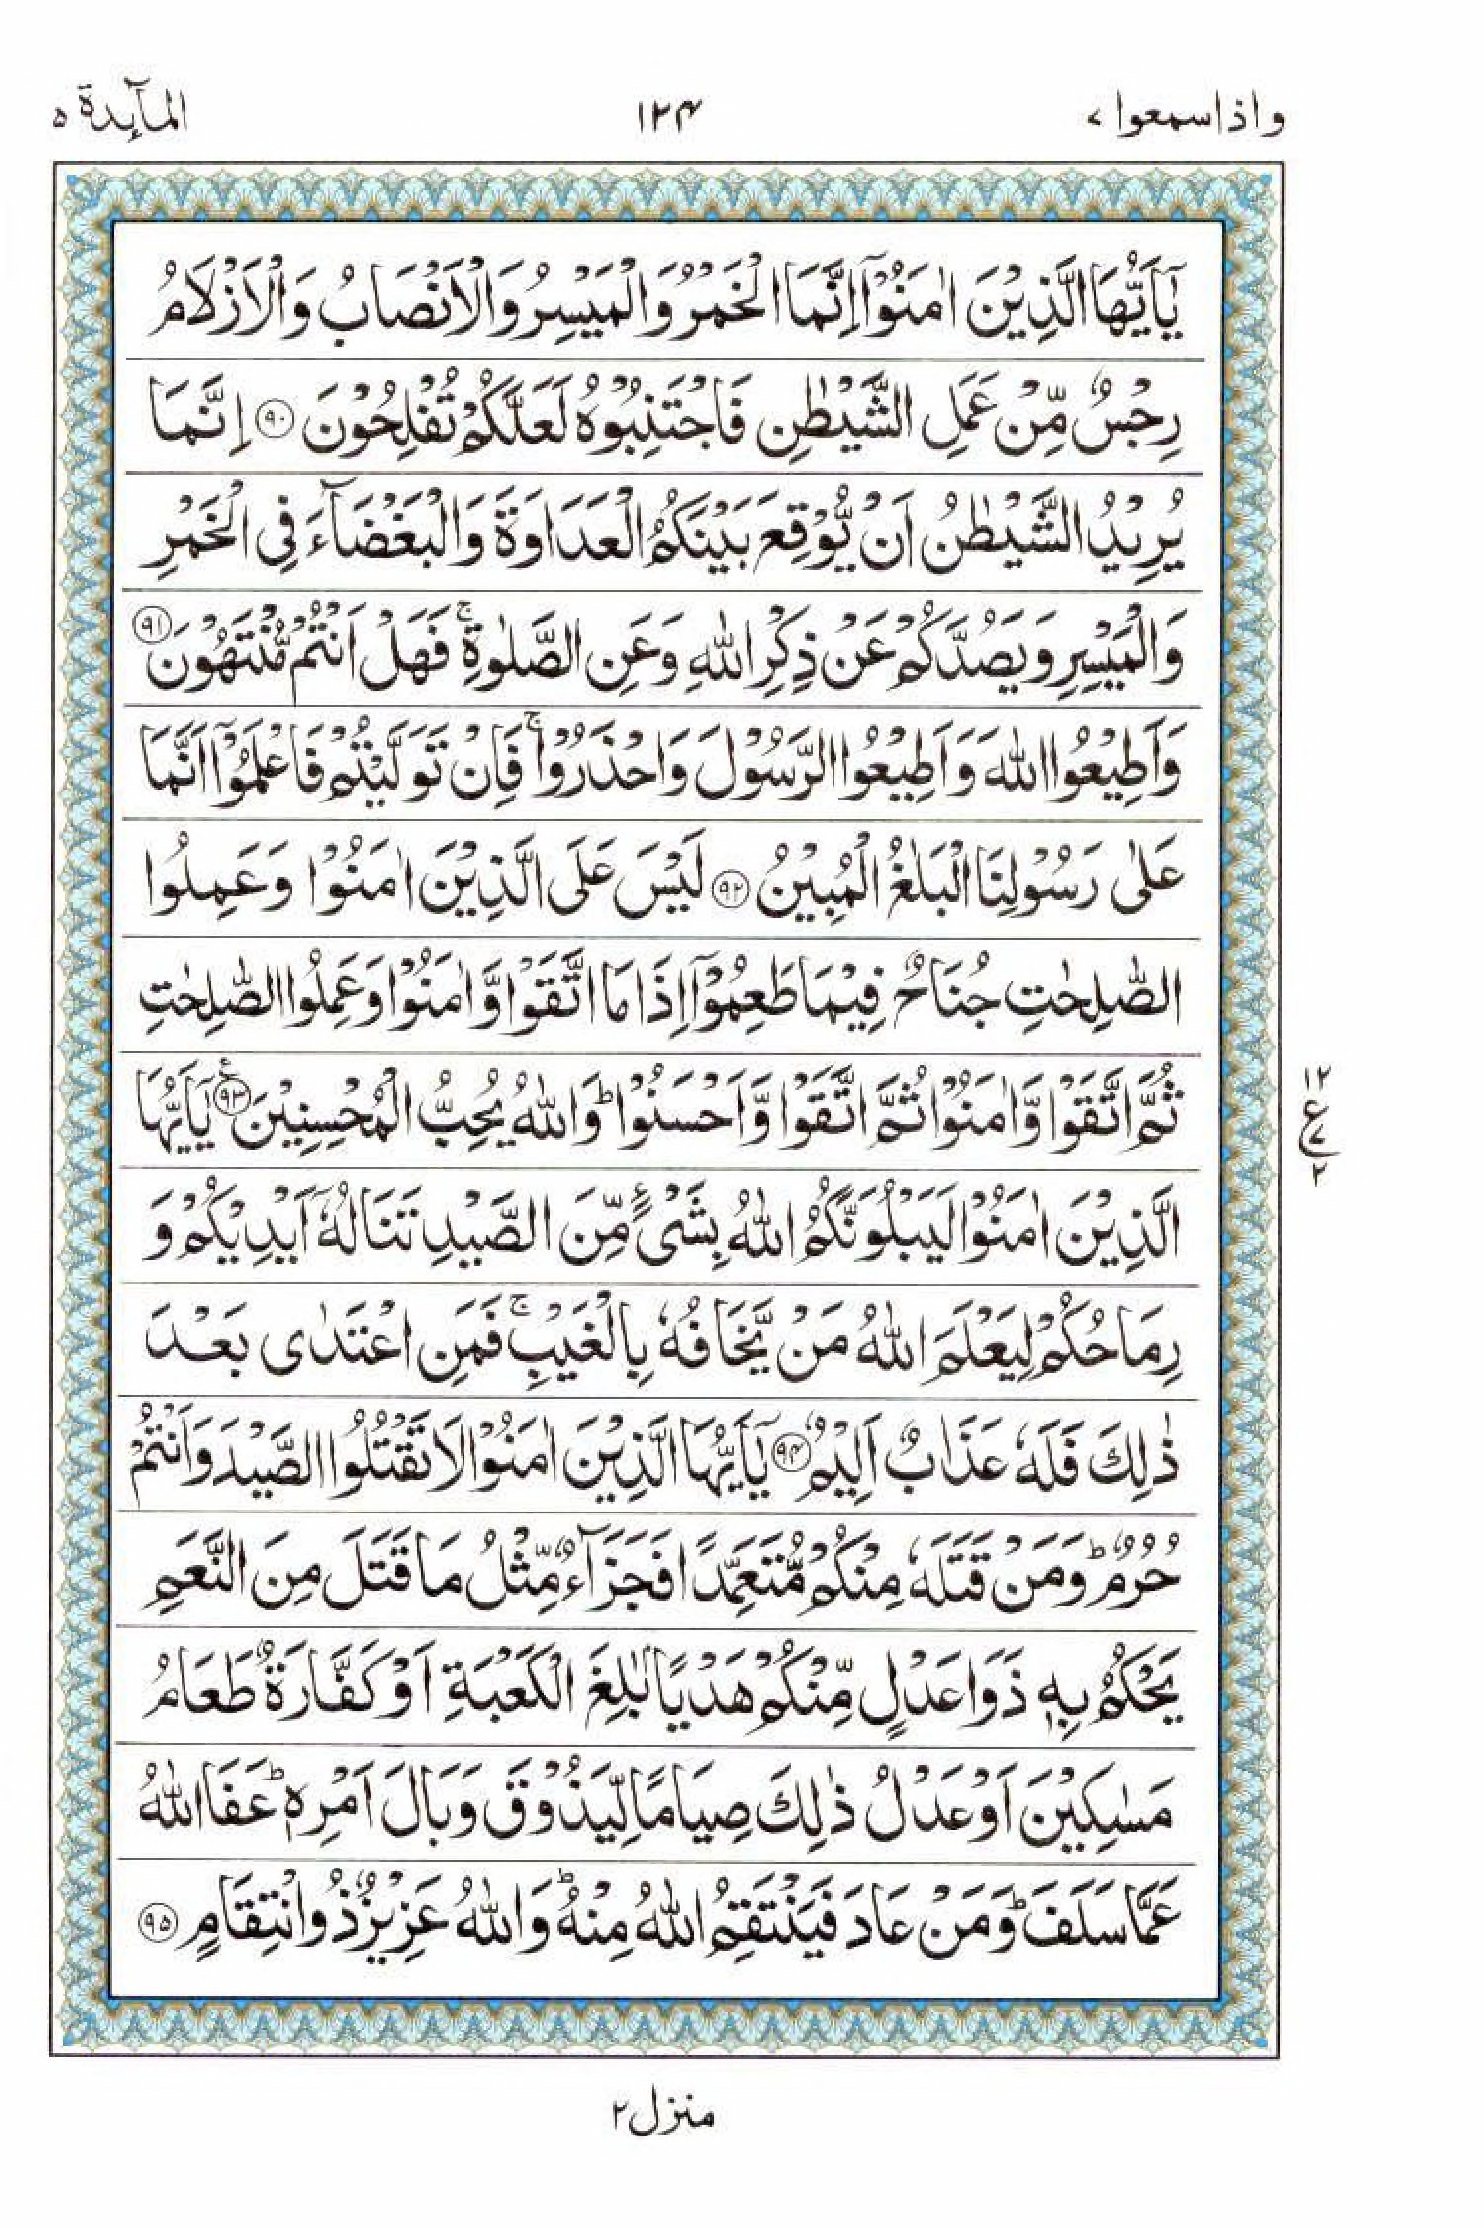 واذاسمعوا ٧ ١٢٤ المآىِٕدة ٥
يٰۤاَيُّهَا الَّذِيْنَ اٰمَنُوْۤا اِنَّمَا الْخَمْرُ وَالْمَيْسِرُ وَالْاَنْصَابُ وَالْاَزْلَامُ
رِجْسٌ مِّنْ عَمَلِ الشَّيْطٰنِ فَاجْتَنِبُوْهُ لَعَلَّكُمْ تُفْلِحُوْنَ ٩٠ اِنَّمَا
يُرِيْدُ الشَّيْطٰنُ اَنْ يُّوْقِعَ بَيْنَكُمُ الْعَدَاوَةَ وَالْبَغْضَآءَ فِي الْخَمْرِ
وَالْمَيْسِرِ وَيَصُدَّكُمْ عَنْ ذِكْرِ اللّٰهِ وَعَنِ الصَّلٰوةِ ۚ فَهَلْ اَنْتُمْ مُّنْتَهُوْنَ ٩١
وَاَطِيْعُوا اللّٰهَ وَاَطِيْعُوا الرَّسُوْلَ وَاحْذَرُوْا ۚ فَاِنْ تَوَلَّيْتُمْ فَاعْلَمُوْۤا اَنَّمَا
عَلٰى رَسُوْلِنَا الْبَلٰغُ الْمُبِيْنُ ٩٢ لَيْسَ عَلَى الَّذِيْنَ اٰمَنُوْا وَعَمِلُوا
الصّٰلِحٰتِ جُنَاحٌ فِيْمَا طَعِمُوْۤا اِذَا مَا اتَّقَوْا وَّاٰمَنُوْا وَعَمِلُوا الصّٰلِحٰتِ
ثُمَّ اتَّقَوْا وَّاٰمَنُوْا ثُمَّ اتَّقَوْا وَّاَحْسَنُوْا ؕ وَاللّٰهُ يُحِبُّ الْمُحْسِنِيْنَ ٩٣ ع يٰۤاَيُّهَا
١٢ ع ٧ ٢
الَّذِيْنَ اٰمَنُوْا لَيَبْلُوَنَّكُمُ اللّٰهُ بِشَيْءٍ مِّنَ الصَّيْدِ تَنَالُهٗۤ اَيْدِيْكُمْ وَ
رِمَاحُكُمْ لِيَعْلَمَ اللّٰهُ مَنْ يَّخَافُهٗ بِالْغَيْبِ ۚ فَمَنِ اعْتَدٰى بَعْدَ
ذٰلِكَ فَلَهٗ عَذَابٌ اَلِيْمٌ ٩٤ يٰۤاَيُّهَا الَّذِيْنَ اٰمَنُوْا لَا تَقْتُلُوا الصَّيْدَ وَاَنْتُمْ
حُرُمٌ ؕ وَمَنْ قَتَلَهٗ مِنْكُمْ مُّتَعَمِّدًا فَجَزَآءٌ مِّثْلُ مَا قَتَلَ مِنَ النَّعَمِ
يَحْكُمُ بِهٖ ذَوَا عَدْلٍ مِّنْكُمْ هَدْيًا بٰلِغَ الْكَعْبَةِ اَوْ كَفَّارَةٌ طَعَامُ
مَسٰكِيْنَ اَوْ عَدْلُ ذٰلِكَ صِيَامًا لِّيَذُوْقَ وَبَالَ اَمْرِهٖ ؕ عَفَا اللّٰهُ
عَمَّا سَلَفَ ؕ وَمَنْ عَادَ فَيَنْتَقِمُ اللّٰهُ مِنْهُ ؕ وَاللّٰهُ عَزِيْزٌ ذُو انْتِقَامٍ ٩٥
منزل ٢